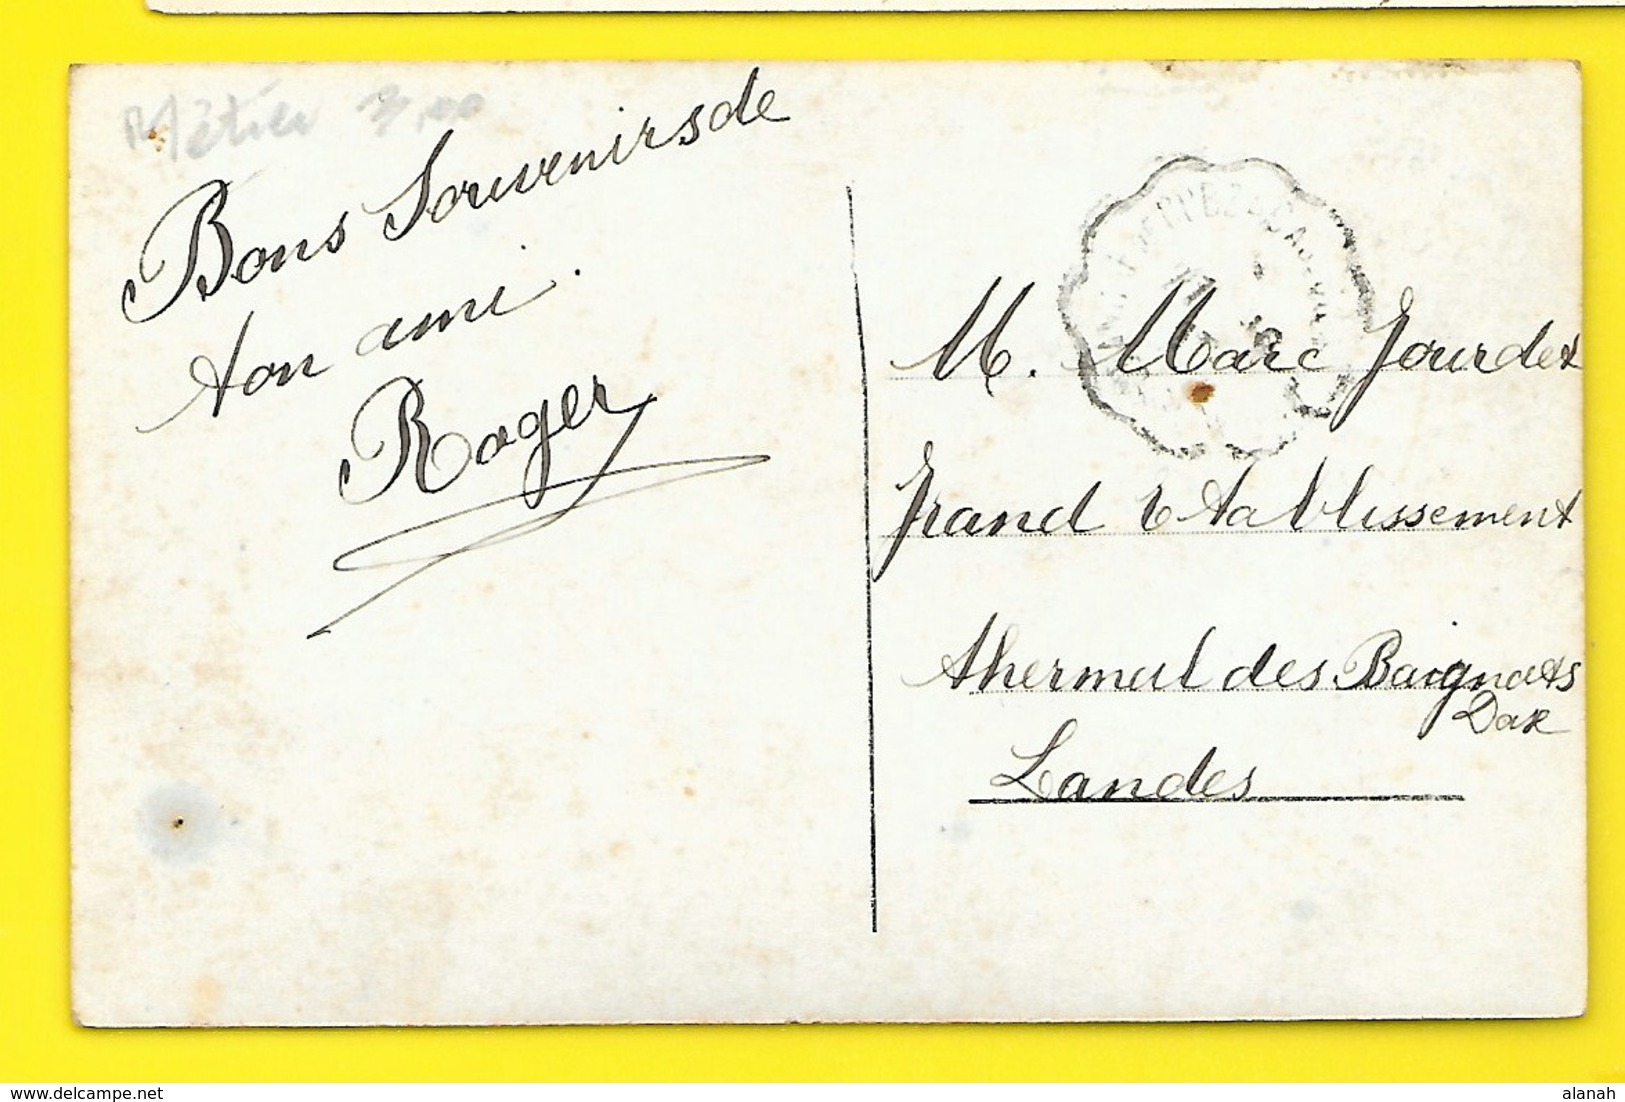 Métier 3,00
Bons Souvenirs de
ton ami.
Roger
M. Marc Jourdet
Grand Etablissement
thermal des Baignots
Dax
Landes
alanah